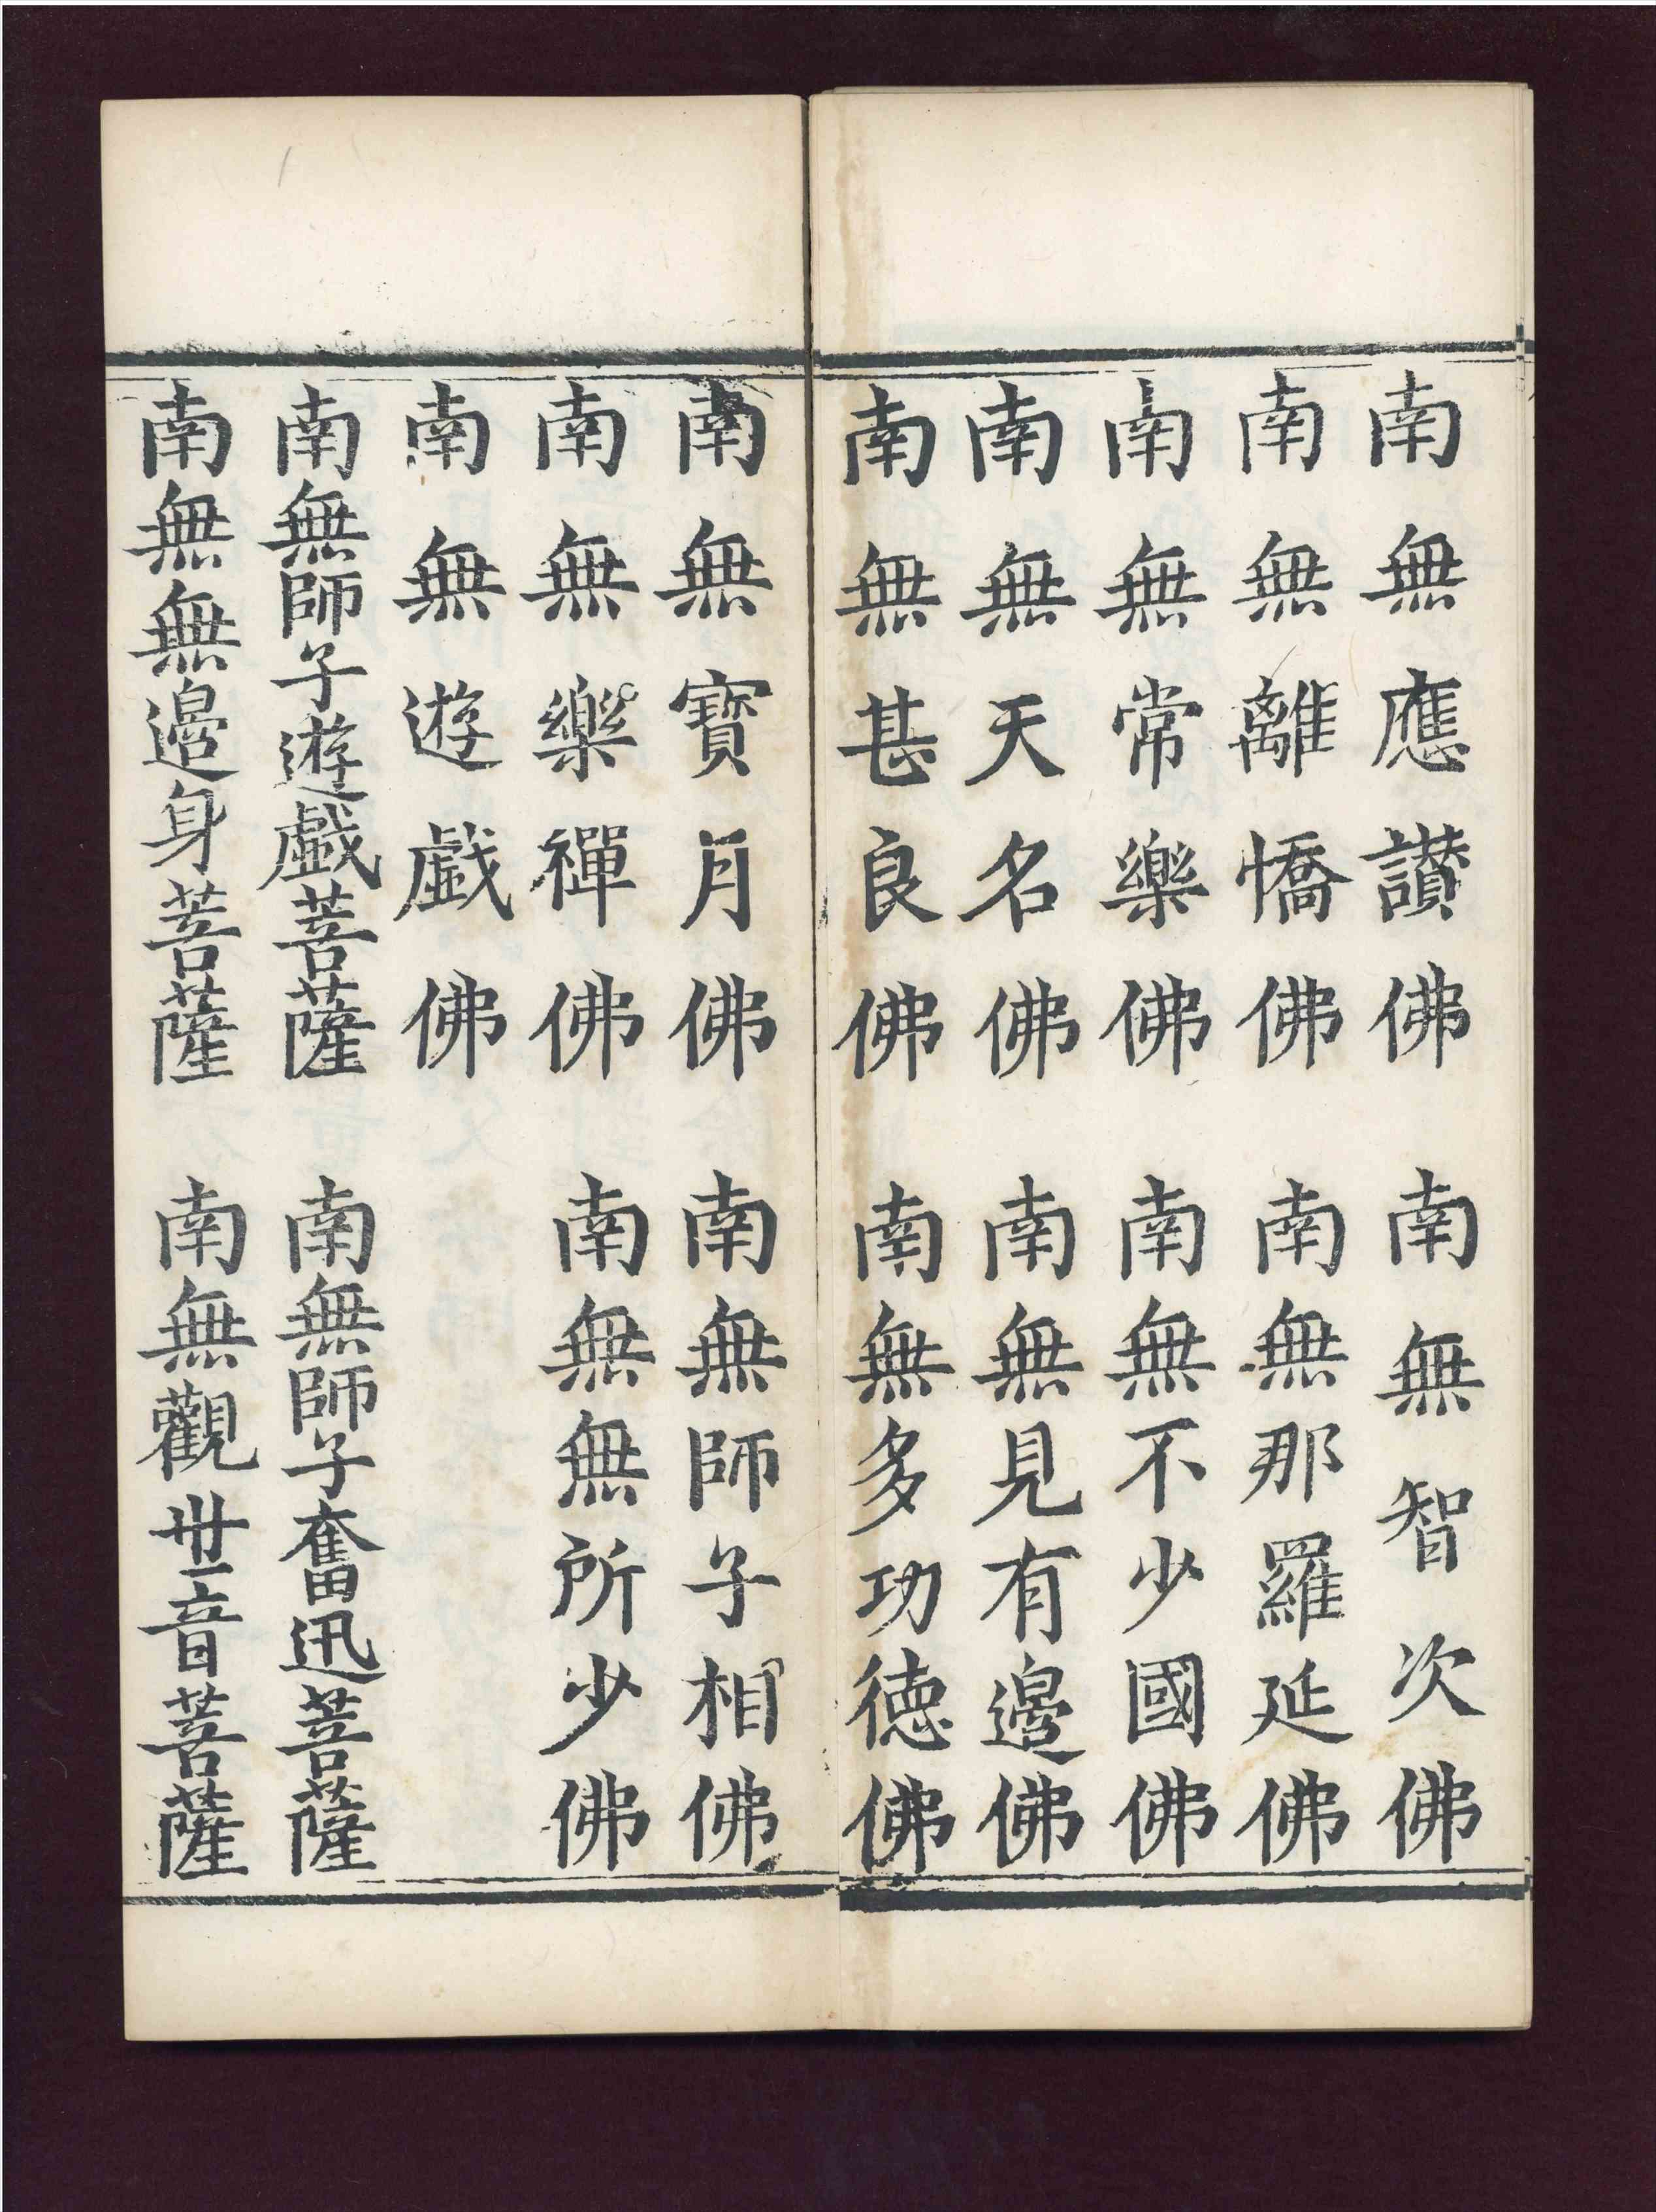 南無應讃佛　南無智次佛
南無離憍佛　南無那羅延佛
南無常樂佛　南無不少國佛
南無天名佛　南無見有邊佛
南無甚良佛　南無多功德佛
南無寳月佛　南無師子相佛
南無樂禪佛　南無無所少佛
南無遊戲佛
南無師子遊戲菩薩　南無師子奮迅菩薩
南無無邊身菩薩　南無觀世音菩薩